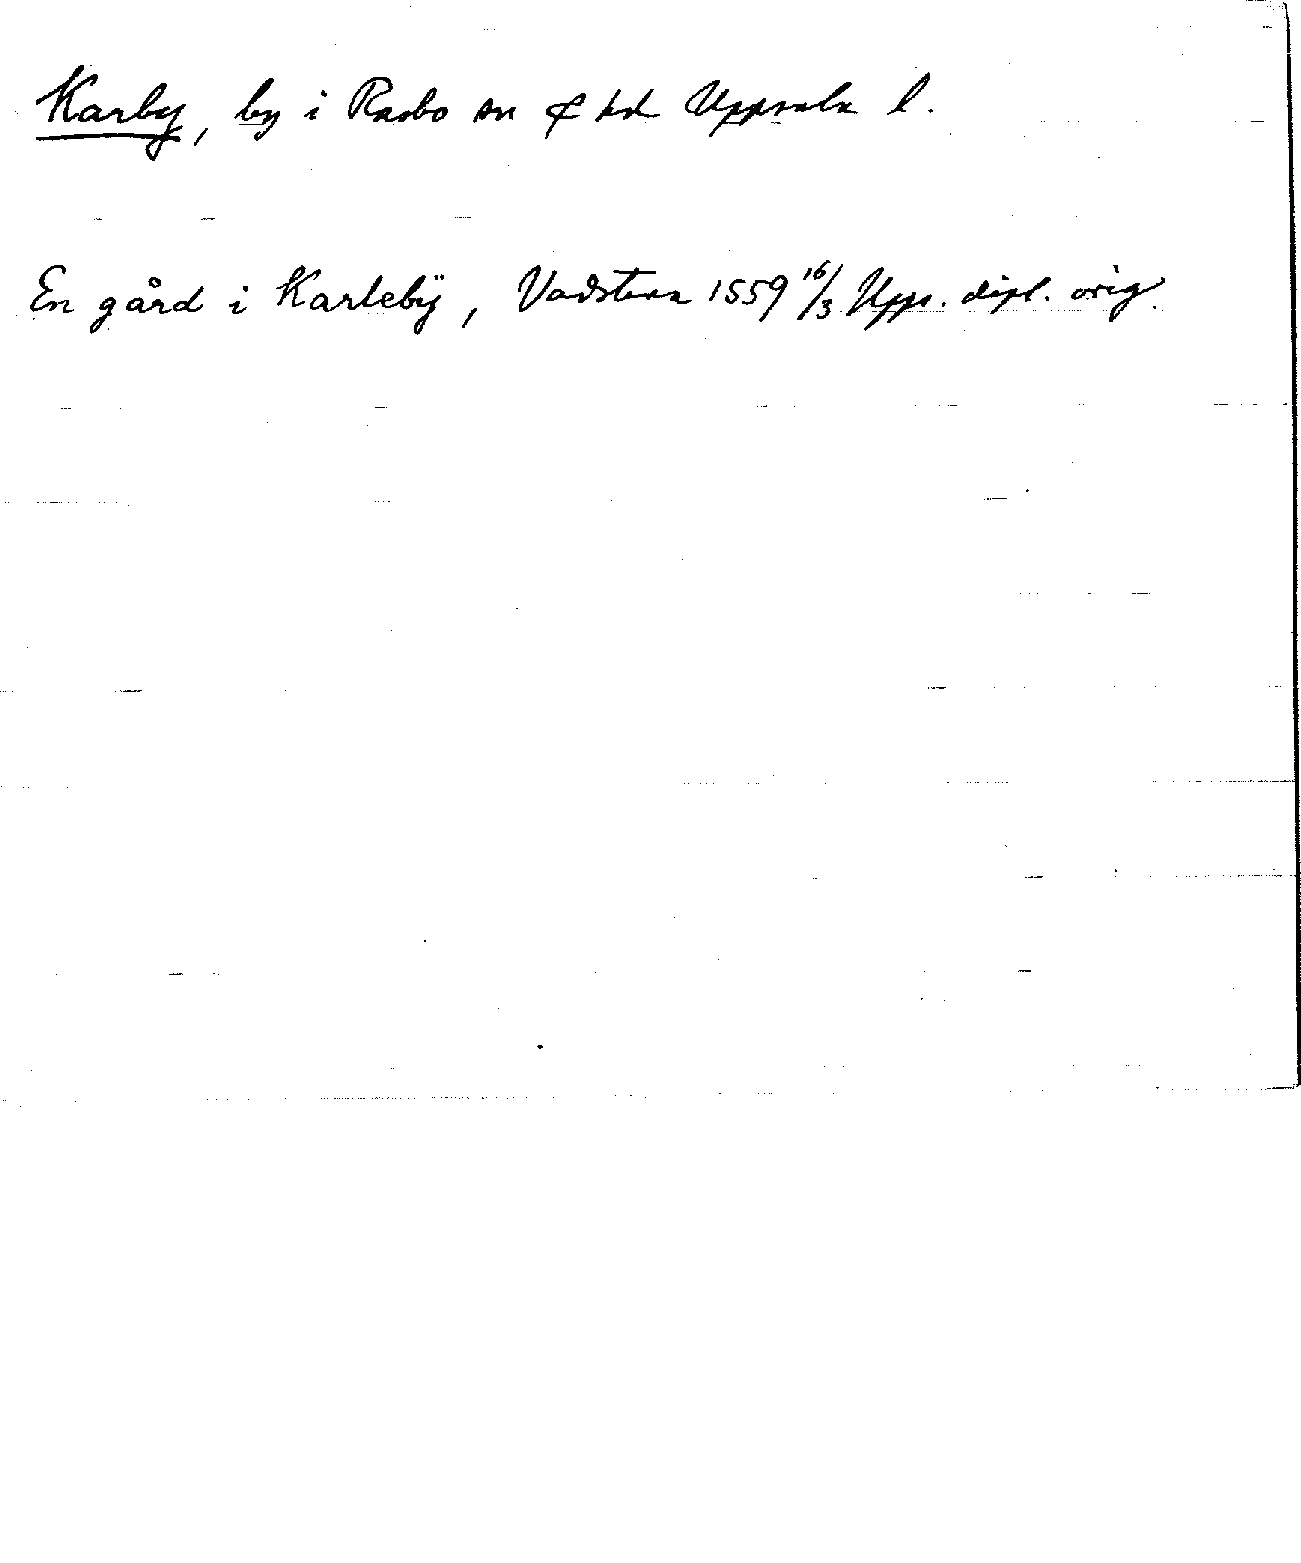 Karby, by i Rasbo sn & hd Uppsala l.
En gård i Karlebÿ, Vadstena 1559 16/3 Upps. dipl. orig.